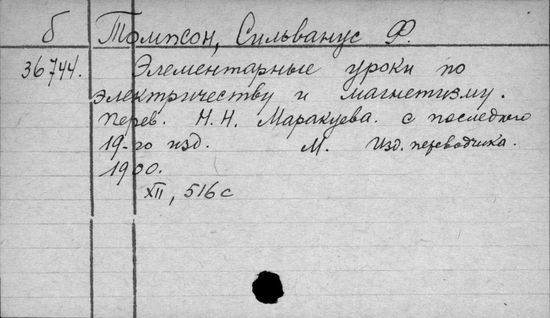 б Томпсон, Сильванус Ф.
36744. Элементарные уроки по
электричеству и магнетизму.
Перев. Н. Н. Маракуева. с последнего
19-го изд. М. Изд. переводчика.
1900.
XII, 516 с